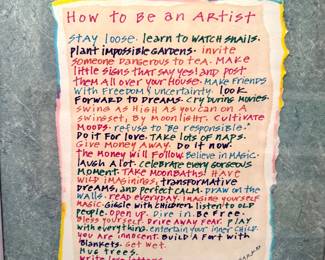 How to Be an Artist
stay loose. learn to watch snails.
plant impossible gardens. invite
someone dangerous to tea. Make
little signs that say yes! and post
them all over your house. Make friends
with freedom & uncertainty. look
forward to dreams. cry during movies.
swing as high as you can on a
swingset, by moonlight. cultivate
moods. refuse to "be responsible."
Do it for love. Take lots of naps.
Give money away. Do it now.
The money will follow. Believe in magic.
laugh a lot. celebrate every gorgeous
moment. Take moonbaths. Have
wild imaginings, transformative
dreams, and perfect calm. draw on the
walls. read everyday. Imagine yourself
magic. Giggle with children. listen to old
people. open up. Dive in. Be free.
Bless yourself. Drive away fear. Play
with everything. entertain your inner child.
you are innocent. Build a fort with
blankets. Get wet.
Hug trees.
write love letters.
SARK